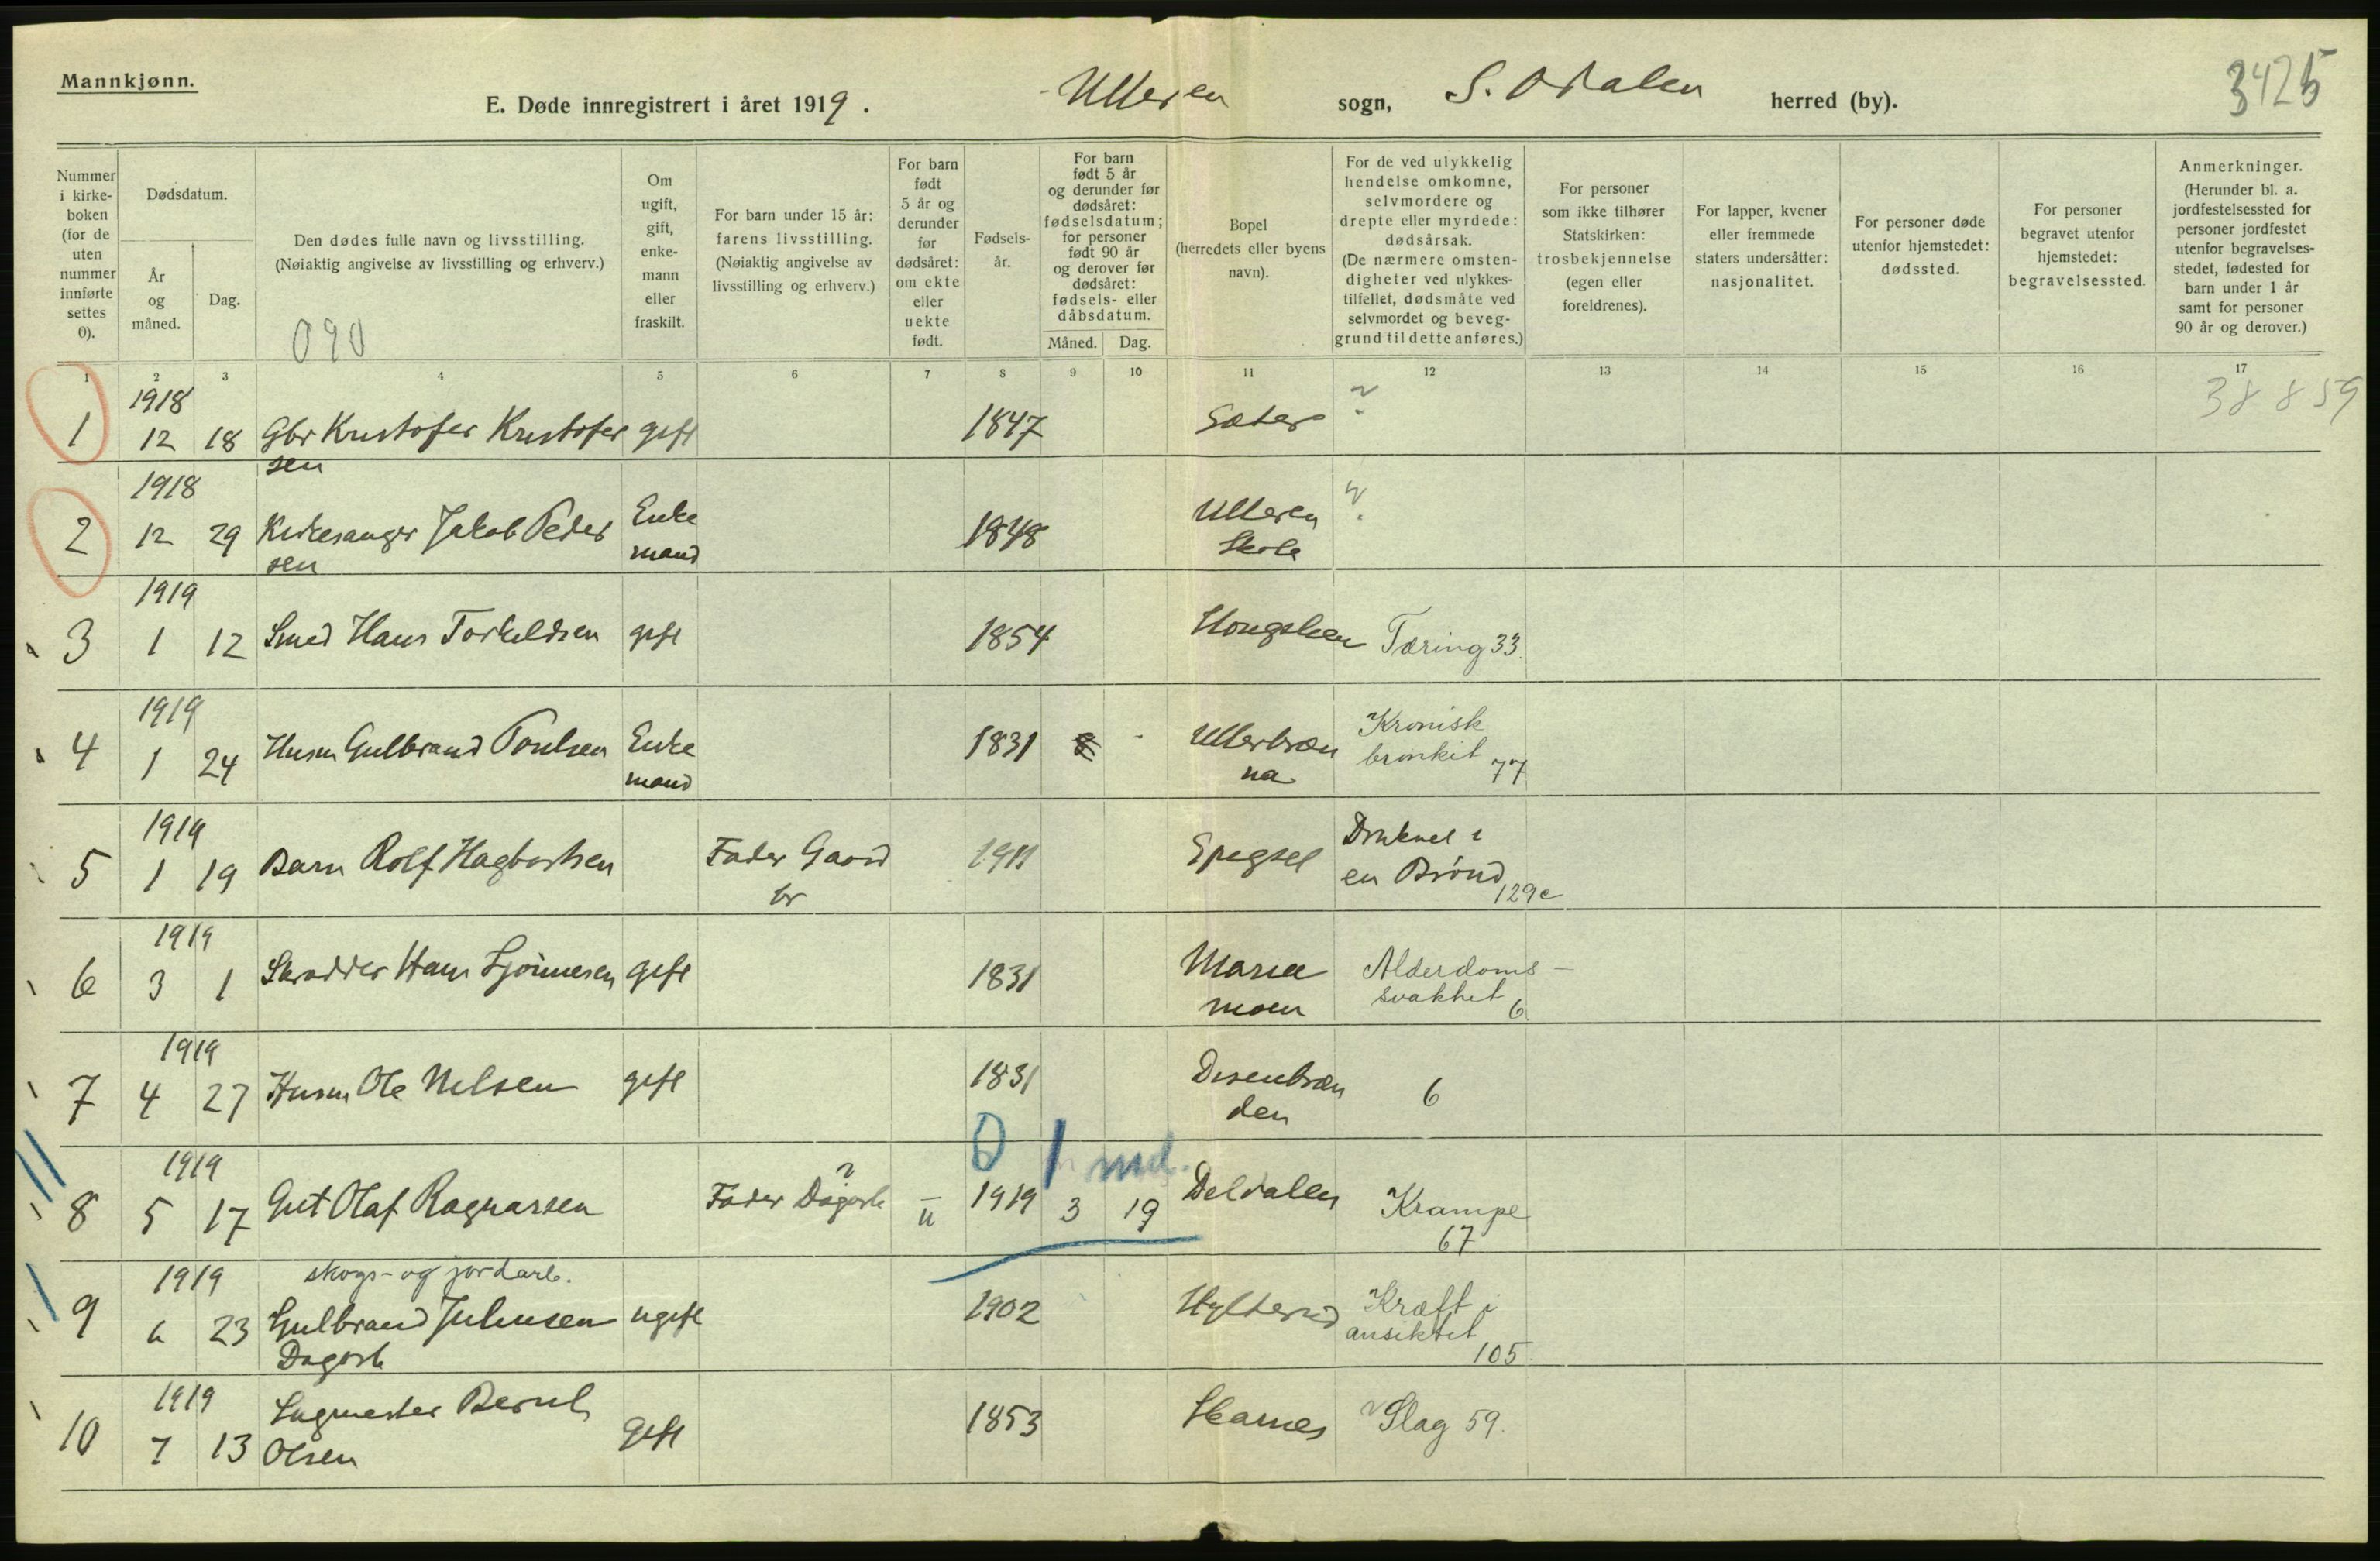 Mannkjønn.
E. Døde innregistrert i året 1919. Ulleren sogn, S. Odalen herred (by).
3425
Nummer i kirkeboken (for de uten nummer innførte settes 0).
Dødsdatum.
År og måned.
Dag.
Den dødes fulle navn og livsstilling.
(Nøiaktig angivelse av livsstilling og erhverv.)
090
Om ugift, gift, enkemann eller fraskilt.
For barn under 15 år: farens livsstilling.
(Nøiaktig angivelse av livsstilling og erhverv.)
For barn født 5 år og derunder før dødsåret: om ekte eller uekte født.
Fødselsår.
For barn født 5 år og derunder før dødsåret: fødselsdatum; for personer født 90 år og derover før dødsåret: fødsels- eller dåbsdatum.
Måned.
Dag.
Bopel
(herredets eller byens navn).
For de ved ulykkelig hendelse omkomne, selvmordere og drepte eller myrdede: dødsårsak.
(De nærmere omstendigheter ved ulykkestilfellet, dødsmåte ved selvmordet og beveggrund til dette anføres.)
For personer som ikke tilhører Statskirken: trosbekjennelse
(egen eller foreldrenes).
For lapper, kvener eller fremmede staters undersåtter: nasjonalitet.
For personer døde utenfor hjemstedet: dødssted.
For personer begravet utenfor hjemstedet: begravelsessted.
Anmerkninger.
(Herunder bl. a. jordfestelsessted for personer jordfestet utenfor begravelsesstedet, fødested for barn under 1 år samt for personer 90 år og derover.)
1 2 3 4 5 6 7 8 9 10 11 12 13 14 15 16 17
38859
1 1918 12 18 Gbr Kristofer Kristofersen gift 1847 Sæter ?
2 1918 12 29 Kirkesanger Jakob Pedersen Enkemand 1848 Ulleren Skole ?
3 1919 1 12 Smed Hans Torkeldsen gift 1854 Tæring 33.
4 1919 1 24 Husm Gulbrand Poulsen Enkemand 1831 Ullerbrænna Kronisk bronkit 77
5 1919 1 19 Barn Rolf Hagbartsen Fader Gaardbr 1911 Druknet i en Brønd 129e
6 1919 3 1 Skrædder Hans gift 1831 Mariamoen Alderdoms-svakhet 6
7 1919 4 27 Husm Ole Nilsen gift 1831 Disenbrænden 6
0 1 md.
8 1919 5 17 Gut Olaf Ragnarsen Fader Dagarb ? u 1919 3 19 Deldalen Krampe 67
9 1919 6 23 skogs- og jordarb. Gulbrand Juliussen Dagarb ugift 1902 Kræft i ansiktet 105
10 1919 7 13 Sagmester Bernt Olsen gift 1853 Skarnes Slag 59.